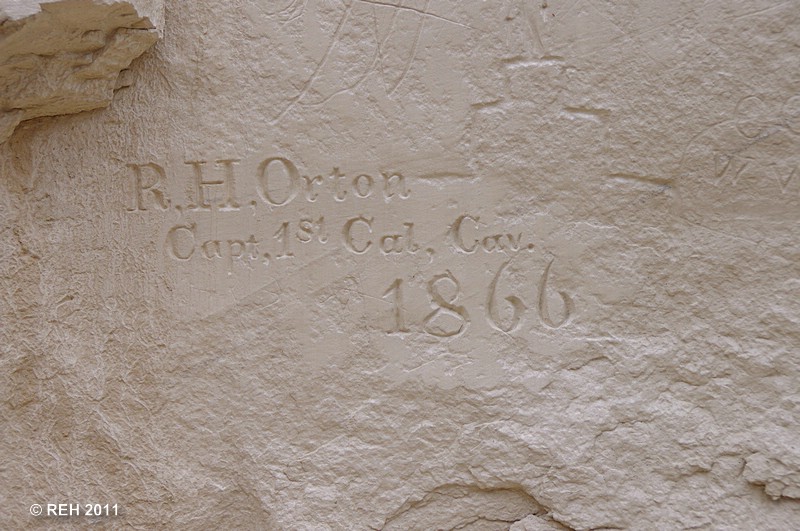 R.H.Orton
Capt, 1st Cal, Cav.
1866
© REH 2011